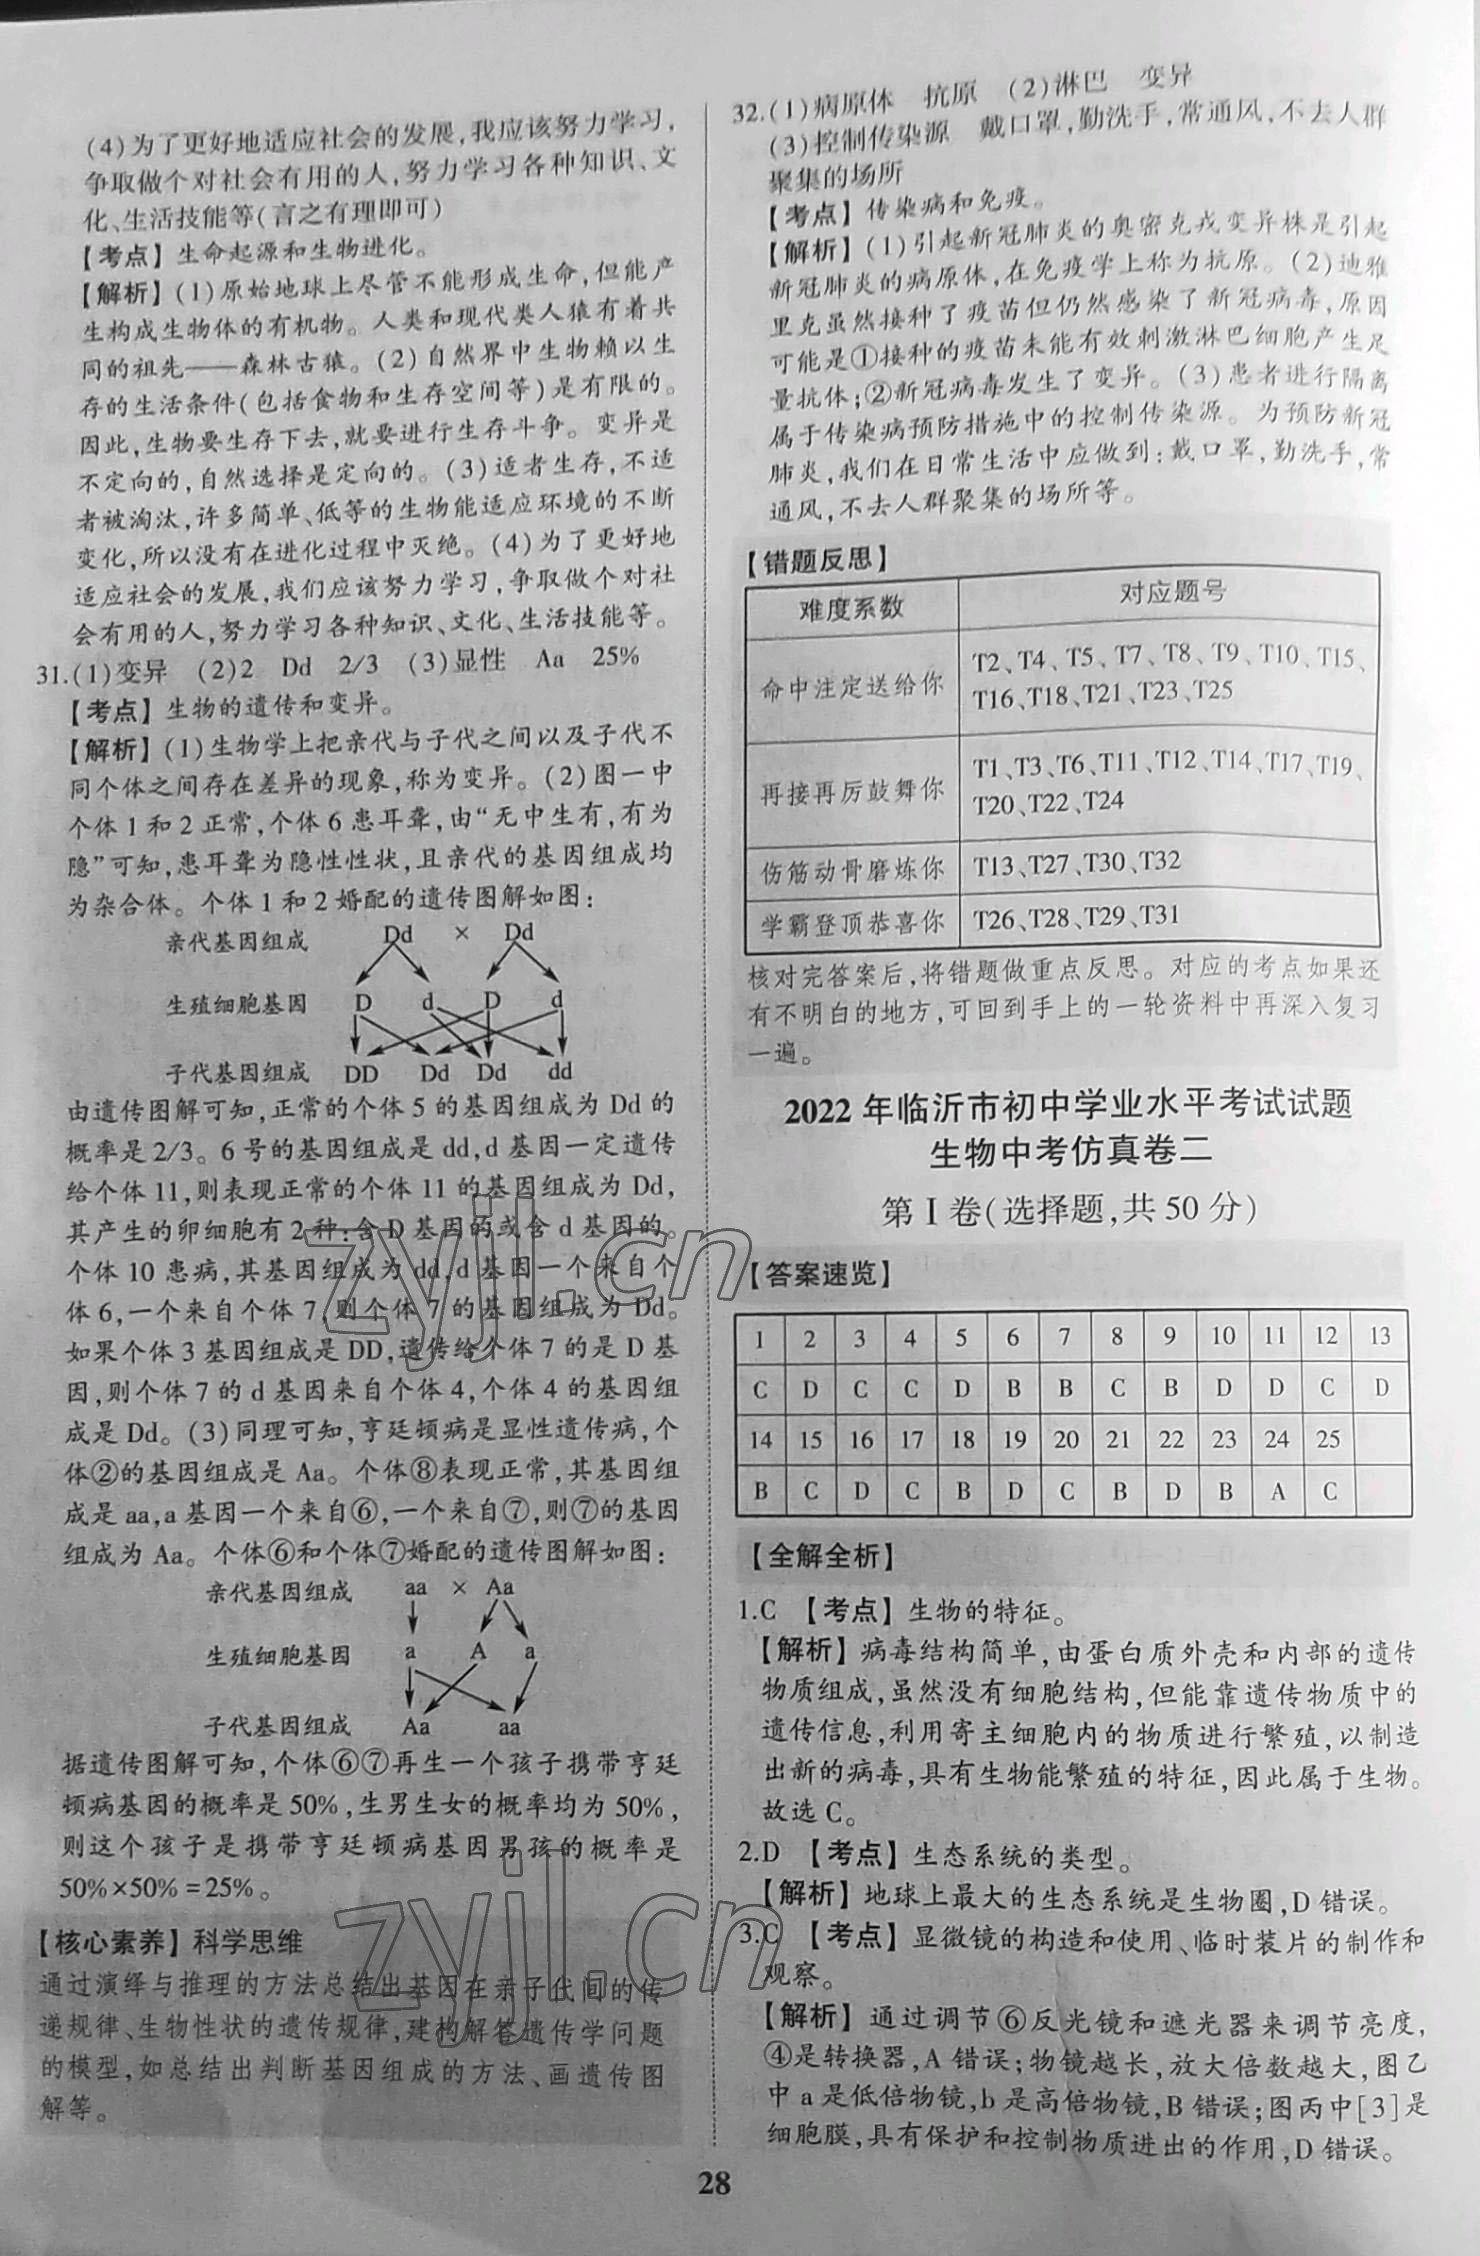 (4)为了更好地适应社会的发展,我应该努力学习,
争取做个对社会有用的人,努力学习各种知识、文
化、生活技能等(言之有理即可)
【考点】生命起源和生物进化。
【解析】(1)原始地球上尽管不能形成生命,但能产
生构成生物体的有机物。人类和现代类人猿有着共
同的祖先——森林古猿。(2)自然界中生物赖以生
存的生活条件(包括食物和生存空间等)是有限的。
因此,生物要生存下去,就要进行生存斗争。变异是
不定向的,自然选择是定向的。(3)适者生存,不适
者被淘汰,许多简单、低等的生物能适应环境的不断
变化,所以没有在进化过程中灭绝。(4)为了更好地
适应社会的发展,我们应该努力学习,争取做个对社
会有用的人,努力学习各种知识、文化、生活技能等。
31.(1)变异 (2)2 Dd 2/3 (3)显性 Aa 25%
【考点】生物的遗传和变异。
【解析】(1)生物学上把亲代与子代之间以及子代不
同个体之间存在差异的现象,称为变异。(2)图一中
个体1和2正常,个体6患耳聋,由“无中生有,有为
隐”可知,患耳聋为隐性性状,且亲代的基因组成均
为杂合体。个体1和2婚配的遗传图解如图:
亲代基因组成 Dd × Dd
生殖细胞基因 D d D d
子代基因组成 DD Dd Dd dd
由遗传图解可知,正常的个体5的基因组成为Dd的
概率是2/3。6号的基因组成是dd,d基因一定遗传
给个体11,则表现正常的个体11的基因组成为Dd,
其产生的卵细胞有2种:含D基因的或含d基因的。
个体10患病,其基因组成为dd,d基因一个来自个
体6,一个来自个体7,则个体7的基因组成为Dd。
如果个体3基因组成是DD,遗传给个体7的是D基
因,则个体7的d基因来自个体4,个体4的基因组
成是Dd。(3)同理可知,亨廷顿病是显性遗传病,个
体②的基因组成是Aa。个体⑧表现正常,其基因组
成是aa,a基因一个来自⑥,一个来自⑦,则⑦的基因
组成为Aa。个体⑥和个体⑦婚配的遗传图解如图:
亲代基因组成 aa × Aa
生殖细胞基因 a A a
子代基因组成 Aa aa
据遗传图解可知,个体⑥⑦再生一个孩子携带亨廷
顿病基因的概率是50%,生男生女的概率均为50%,
则这个孩子是携带亨廷顿病基因男孩的概率是
50%×50%=25%。
【核心素养】科学思维
通过演绎与推理的方法总结出基因在亲子代间的传
递规律、生物性状的遗传规律,建构解答遗传学问题
的模型,如总结出判断基因组成的方法、画遗传图
解等。
32.(1)病原体 抗原 (2)淋巴 变异
(3)控制传染源 戴口罩,勤洗手,常通风,不去人群
聚集的场所
【考点】传染病和免疫。
【解析】(1)引起新冠肺炎的奥密克戎变异株是引起
新冠肺炎的病原体,在免疫学上称为抗原。(2)迪雅
里克虽然接种了疫苗但仍然感染了新冠病毒,原因
可能是①接种的疫苗未能有效刺激淋巴细胞产生足
量抗体;②新冠病毒发生了变异。(3)患者进行隔离
属于传染病预防措施中的控制传染源。为预防新冠
肺炎,我们在日常生活中应做到:戴口罩,勤洗手,常
通风,不去人群聚集的场所等。
【错题反思】
难度系数 对应题号
命中注定送给你 T2、T4、T5、T7、T8、T9、T10、T15、
T16、T18、T21、T23、T25
再接再厉鼓舞你 T1、T3、T6、T11、T12、T14、T17、T19、
T20、T22、T24
伤筋动骨磨炼你 T13、T27、T30、T32
学霸登顶恭喜你 T26、T28、T29、T31
核对完答案后,将错题做重点反思。对应的考点如果还
有不明白的地方,可回到手上的一轮资料中再深入复习
一遍。
2022年临沂市初中学业水平考试试题
生物中考仿真卷二
第Ⅰ卷(选择题,共50分)
【答案速览】
1 2 3 4 5 6 7 8 9 10 11 12 13
C D C C D B B C B D D C D
14 15 16 17 18 19 20 21 22 23 24 25
B C D C B D C B D B A C
【全解全析】
1.C 【考点】生物的特征。
【解析】病毒结构简单,由蛋白质外壳和内部的遗传
物质组成,虽然没有细胞结构,但能靠遗传物质中的
遗传信息,利用寄主细胞内的物质进行繁殖,以制造
出新的病毒,具有生物能繁殖的特征,因此属于生物。
故选C。
2.D 【考点】生态系统的类型。
【解析】地球上最大的生态系统是生物圈,D错误。
3.C 【考点】显微镜的构造和使用、临时装片的制作和
观察。
【解析】通过调节⑥反光镜和遮光器来调节亮度,
④是转换器,A错误;物镜越长,放大倍数越大,图乙
中a是低倍物镜,b是高倍物镜,B错误;图丙中[3]是
细胞膜,具有保护和控制物质进出的作用,D错误。
28
zyjl.cn
zyjl.cn